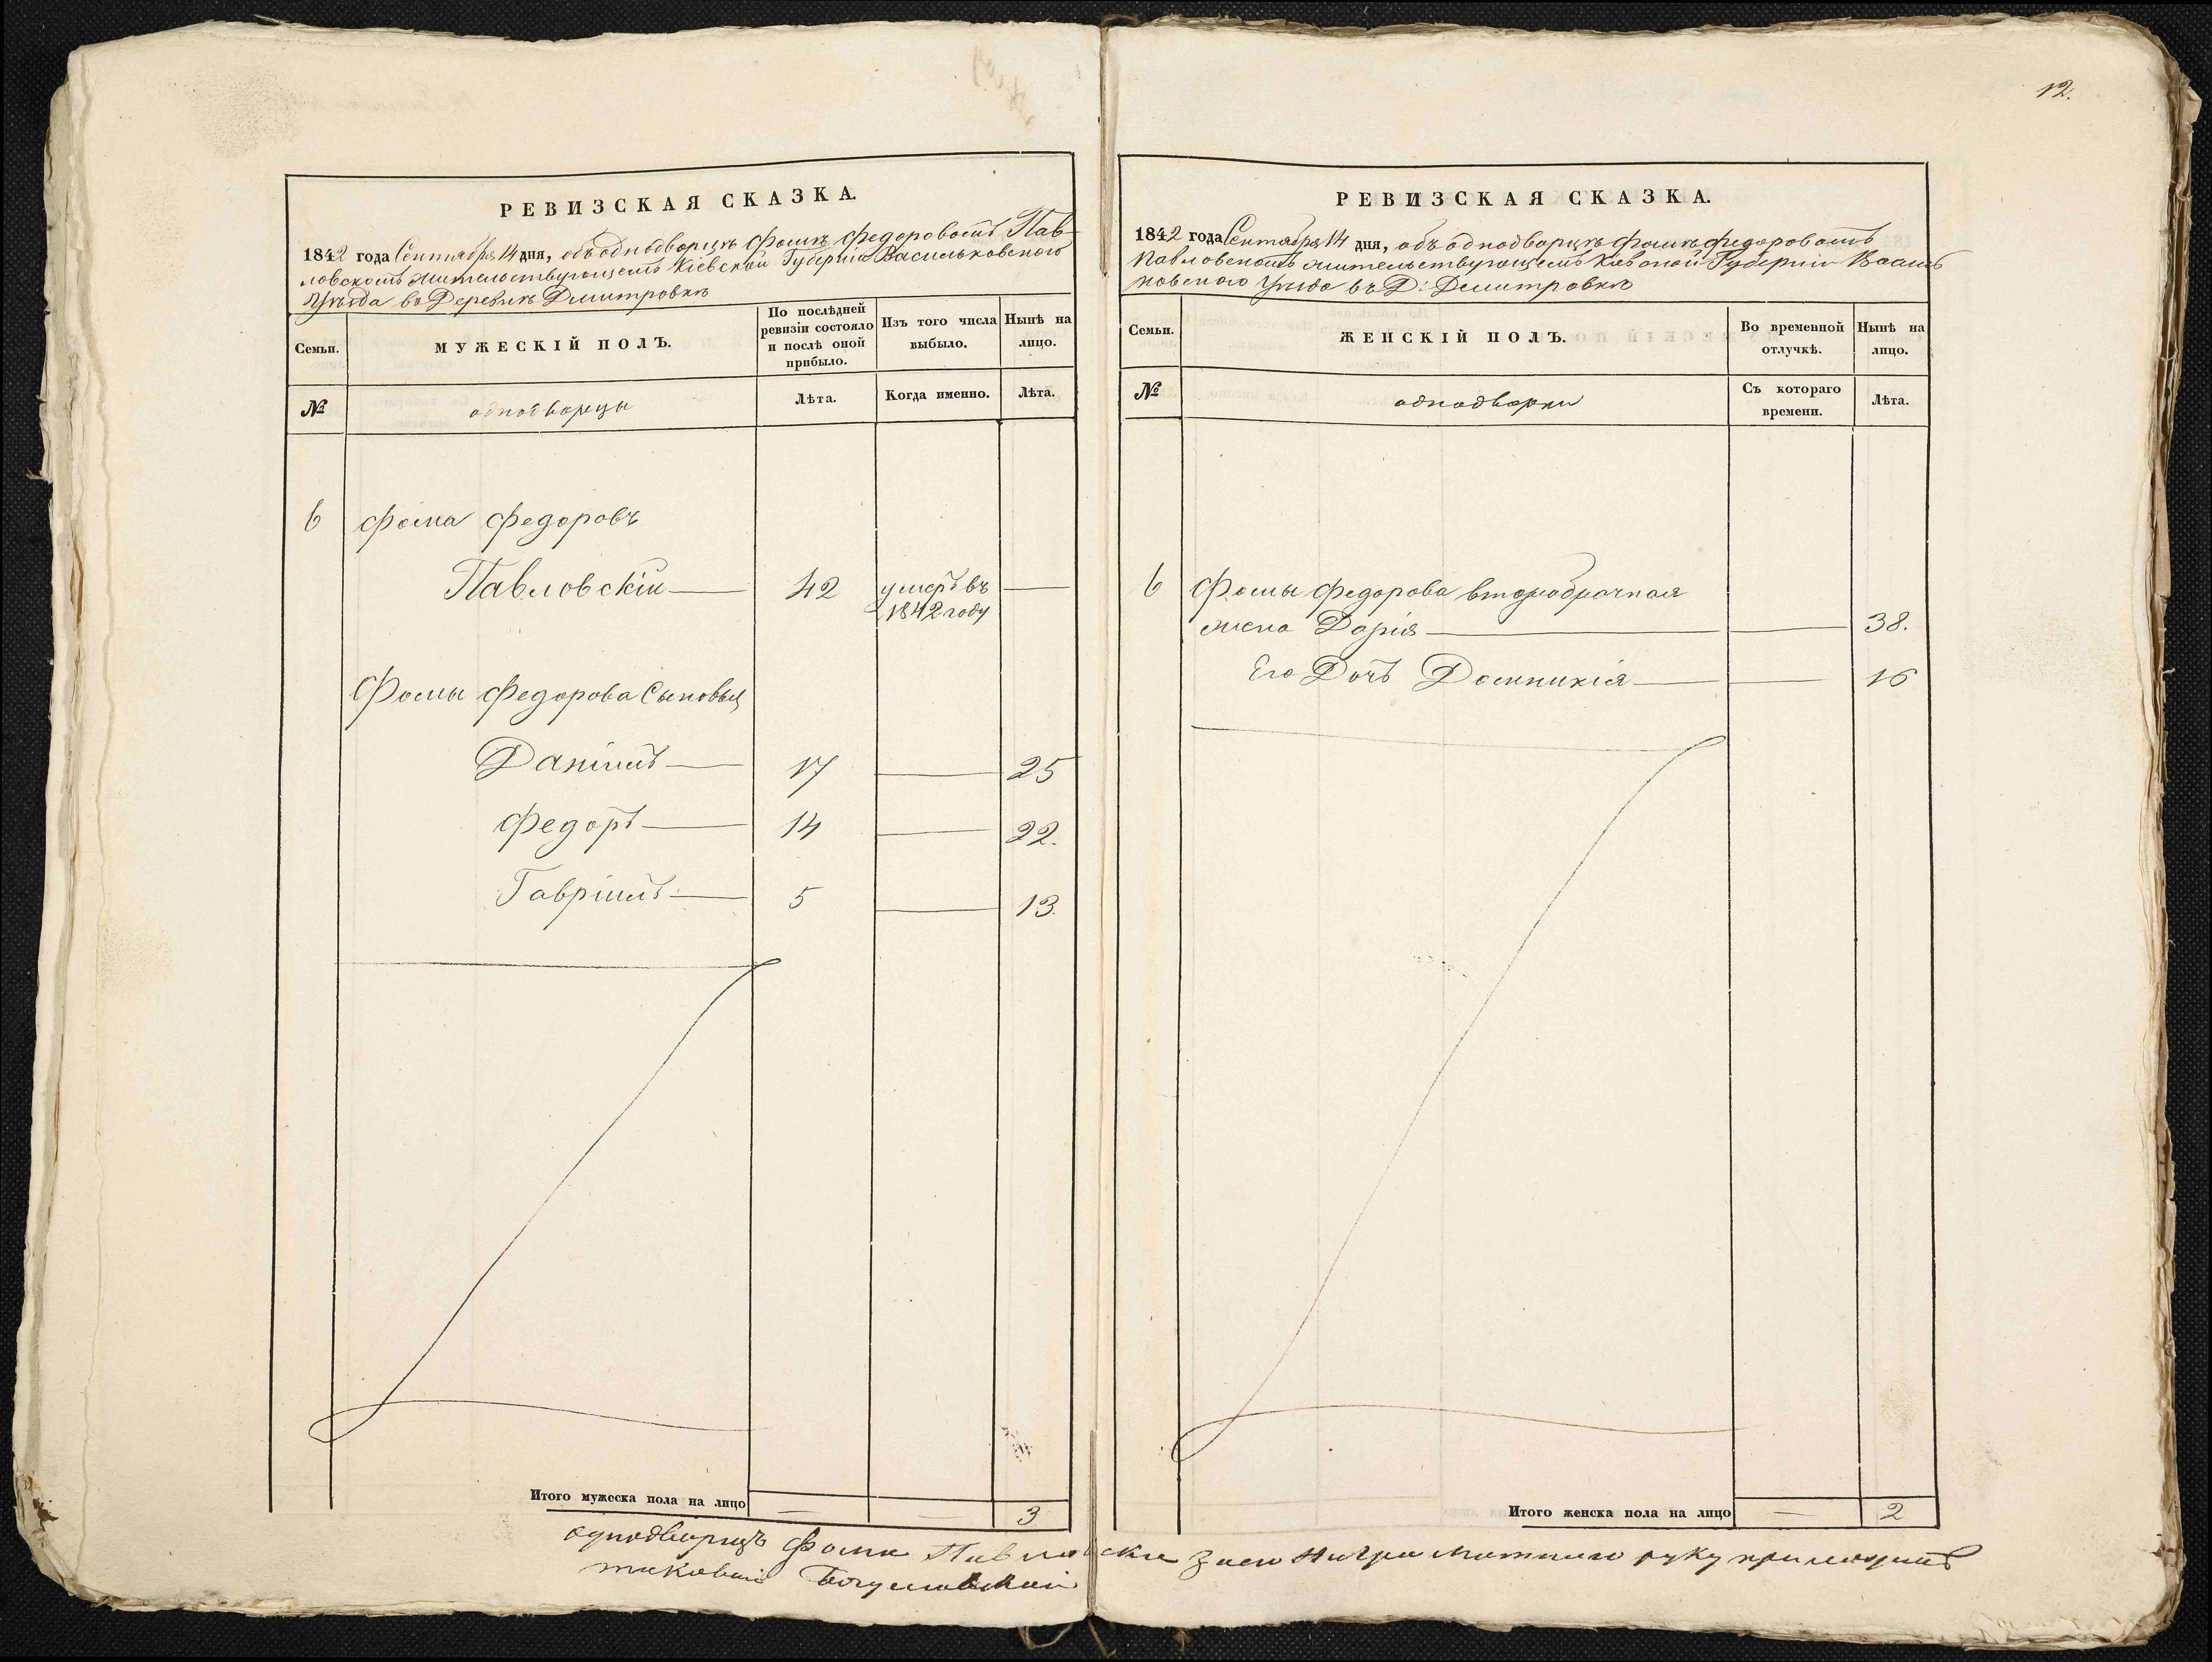 12.
РЕВИЗСКАЯ СКАЗКА.
1842 года Сентября 14 дня, объ однодворцѣ Фомѣ Федоровомъ Пав-
ловскомъ жительствующемъ Кіевской Губерніи Васильковского
Уѣзда въ Деревнѣ Дмитровкѣ
Семьи.
МУЖЕСКІЙ ПОЛЪ.
По послѣдней
ревизіи состояло
и послѣ оной
прибыло.
Изъ того числа
выбыло.
Нынѣ на
лицо.
№
однодворцы
Лѣта.
Когда именно.
Лѣта.
6 Фома Федоровъ
Павловскій 42 умеръ въ
1842 году
Фомы Федорова Сыновья
Даніилъ 17 25
Федоръ 14 22.
Гавріилъ 5 13.
Итого мужеска пола на лицо 3
РЕВИЗСКАЯ СКАЗКА.
1842 года Сентября 14 дня, объ однодворцѣ Фомѣ Федоровомъ
Павловскомъ жительствующемъ Кіевской Губерніи Василь
ковского Уѣзда въ Д: Дмитровкѣ
Семьи.
ЖЕНСКІЙ ПОЛЪ.
Во временной
отлучкѣ.
Нынѣ на
лицо.
№
однодворки
Съ котораго
времени.
Лѣта.
6 Фомы Федорова второбрачная
жена Дарія 38.
Его Дочь Домникія 16
Итого женска пола на лицо 2
однодворцъ Фома Павловски за его руку
таковый